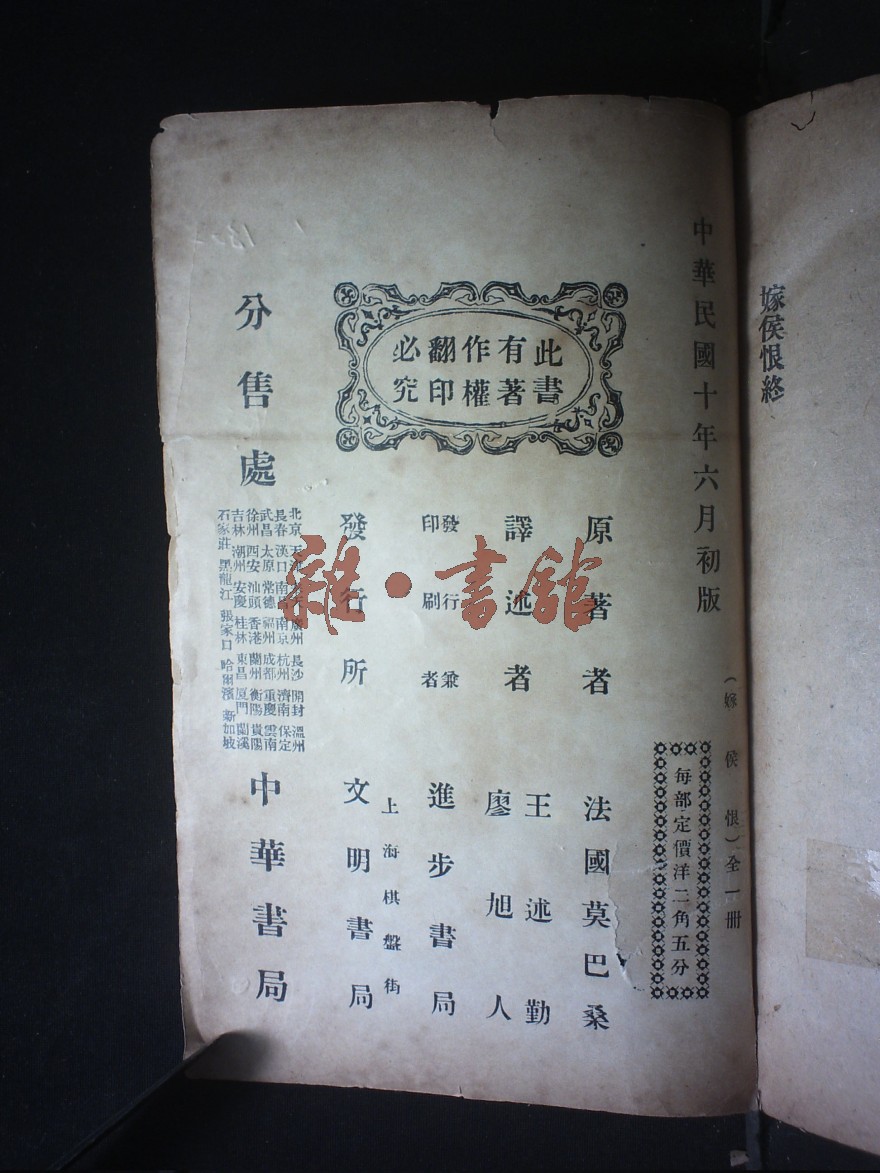 嫁侯恨終
中華民國十年六月初版
(嫁侯恨)全一册
每部定價洋二角五分
此書
有著
作權
翻印
必究
原著者 法國莫巴桑
譯述者 王述勤
廖旭人
發行兼
印刷者 進步書局
上海棋盤街
發行所 文明書局
分售處
北京 天津 廣州 長沙 開封 溫州
長春 漢口 南昌 南京 杭州 濟南 保定
武昌 太原 常德 福州 成都 重慶 雲南
徐州 西安 汕頭 香港 蘭州 衡陽 貴陽
吉林 潮州 安慶 桂林 東昌 厦門 蘭溪
石家莊 黑龍江 張家口 哈爾濱 新加坡
中華書局
雜·書館